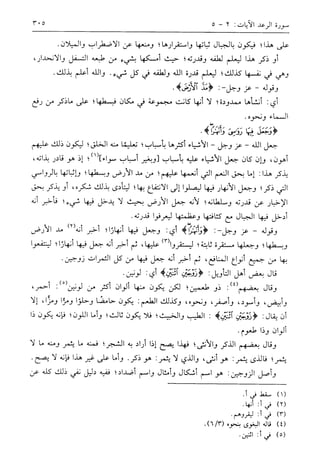 سورة الرعد الآيات: ٢ - ٥
٣٠٥
على هذا؛ فيكون بالجبال ثباتها واستقرارها؛ ومنعها عن الاضطراب والميلان.
أو ذكر هذا ليعلم لطفه وقدرته؛ حيث أمسكها بشيء من طبعه التسفل والانحدار،
وهي في نفسها كذلك؛ ليعلم قدرة الله ولطفه في كل شيء. والله أعلم بذلك.
وقوله - عز وجل-: ﴿مَدَّ ٱلْأَرْضَ﴾.
أي: أنشأها ممدودة؛ لا أنها كانت مجموعة في مكان فبسطها؛ على ماذكر من رفع
السماء ونحوه.
﴿وَجَعَلَ فِيهَا رَوَٰسِىَ وَأَنْهَٰرًا﴾.
جعل الله - عز وجل - الأشياء أكثرها بأسباب؛ تعليمًا منه الخلق؛ ليكون ذلك عليهم
أهون، وإن كان جعل الأشياء عليه بأسباب [وبغير أسباب سواء](١)؛ إذ هو قادر بذاته،
يذكر هذا؛ إما بحق النعم التي أنعمها عليهم؛ من مد الأرض وبسطها؛ وإثباتها بالرواسي
التي ذكر؛ وجعل الأنهار فيها ليصلوا إلى الانتفاع بها؛ ليتأدى بذلك شكره، أو يذكر بحق
الإخبار عن قدرته وسلطانه؛ لأنه جعل الأرض بحيث لا يدخل فيها شيء؛ فأخبر أنه
أدخل فيها الجبال مع كثافتها وعظمتها ليعرفوا قدرته.
وقوله - عز وجل-: ﴿وَأَنْهَٰرًا﴾ أي: وجعل فيها أنهارًا؛ أخبر أنه(٢) مد الأرض
وبسطها؛ وجعلها مستقرة ثابتة؛ ليستقروا(٣) عليها، ثم أخبر أنه جعل فيها أنهارًا؛ لينتفعوا
بها من جميع أنواع المنافع، ثم أخبر أنه جعل فيها من كل الثمرات زوجين.
قال بعض أهل التأويل: ﴿زَوْجَيْنِ ٱثْنَيْنِ﴾ أي: لونين.
وقال بعضهم(٤): ذو طعمين؛ لكن يكون منها ألوان أكثر من لونين(٥): أحمر،
وأبيض، وأسود، وأصفر، ونحوه، وكذلك الطعم: يكون حامضًا وحلوًا ومرًّا ومزًّا، إلا
أن يقال: ﴿زَوْجَيْنِ ٱثْنَيْنِ﴾: الطيب والخبيث؛ فلا يكون ثالث؛ وأما اللون؛ فإنه يكون ذا
ألوان وذا طعوم.
وقال بعضهم الذكر والأنثى؛ فهذا يصح إذا أراد به الشجر؛ فمنه ما يثمر ومنه ما لا
يثمر؛ فالذي يثمر: هو أنثى، والذي لا يثمر: هو ذكر. وأما على غير هذا فإنه لا يصح.
وأصل الزوجين: هو اسم أشكال وأمثال واسم أضداد؛ ففيه دليل نفي ذلك كله عن
(١) سقط في أ.
(٢) في أ: أنها.
(٣) في أ: ليقروهم.
(٤) قاله البغوي بنحوه (٦/٣).
(٥) في أ: اثنين.